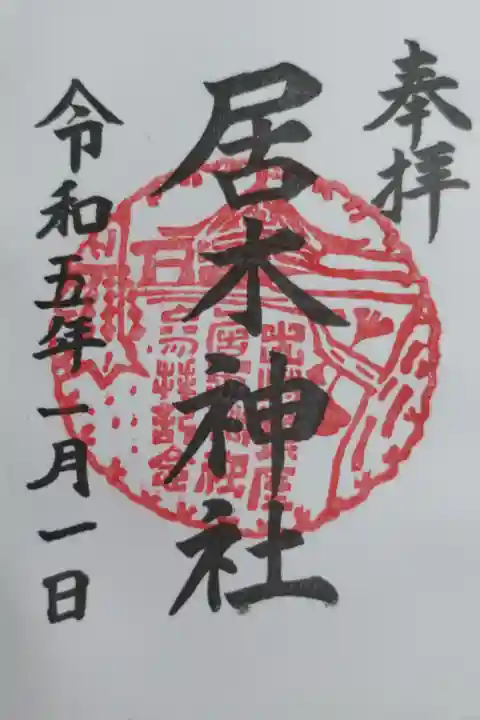 奉拝
居木神社
令和五年一月一日